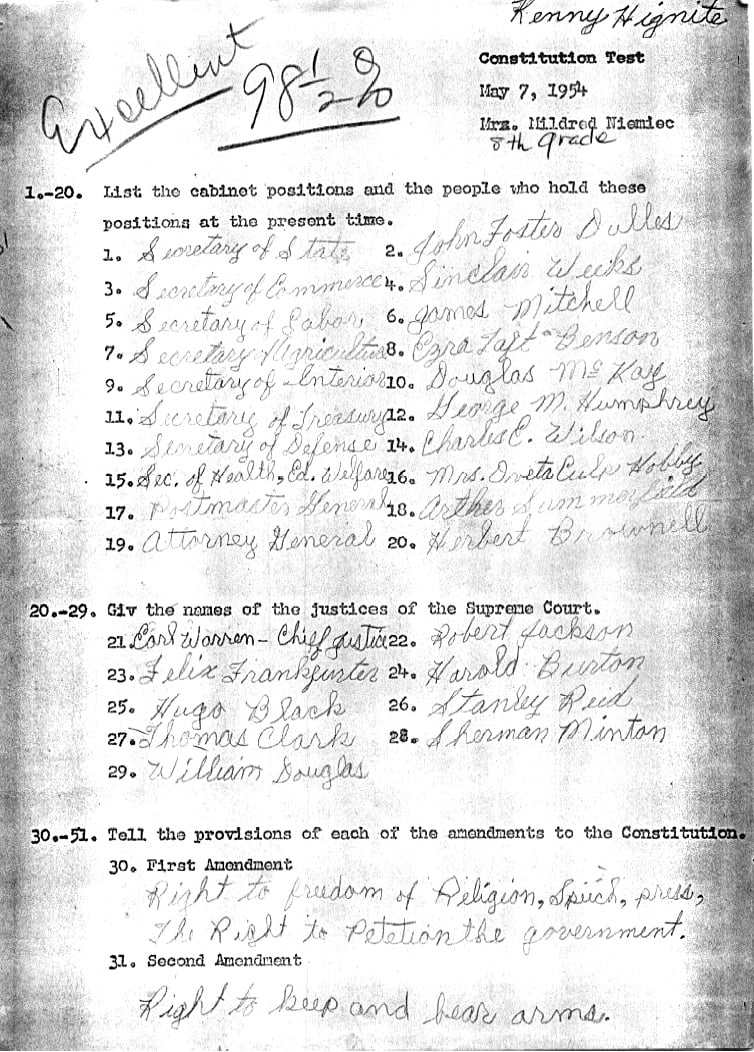 Kenny Hignite
Excellent 98 1/2 %
Constitution Test
May 7, 1954
Mrs. Mildred Niemiec
8th grade
1.-20. List the cabinet positions and the people who hold these
positions at the present time.
1. Secretary of State 2. John Foster Dulles
3. Secretary of Commerce 4. Sinclair Weeks
5. Secretary of Labor 6. James Mitchell
7. Secretary Agriculture 8. Ezra Taft Benson
9. Secretary of Interior 10. Douglas McKay
11. Secretary of Treasury 12. George M. Humphrey
13. Secretary of Defense 14. Charles E. Wilson
15. Sec. of Health, Ed. Welfare 16. Mrs. Oveta Culp Hobby
17. Postmaster General 18. Arther Summerfield
19. Attorney General 20. Herbert Brownell
20.-29. Giv the names of the justices of the Supreme Court.
21. Earl Warren - Chief Justice 22. Robert Jackson
23. Felix Frankfurter 24. Harold Burton
25. Hugo Black 26. Stanley Reed
27. Thomas Clark 28. Sherman Minton
29. William Douglas
30.-51. Tell the provisions of each of the amendments to the Constitution.
30. First Amendment
Right to freedom of Religion, Speech, press,
The Right to Petetion the government.
31. Second Amendment
Right to keep and bear arms.